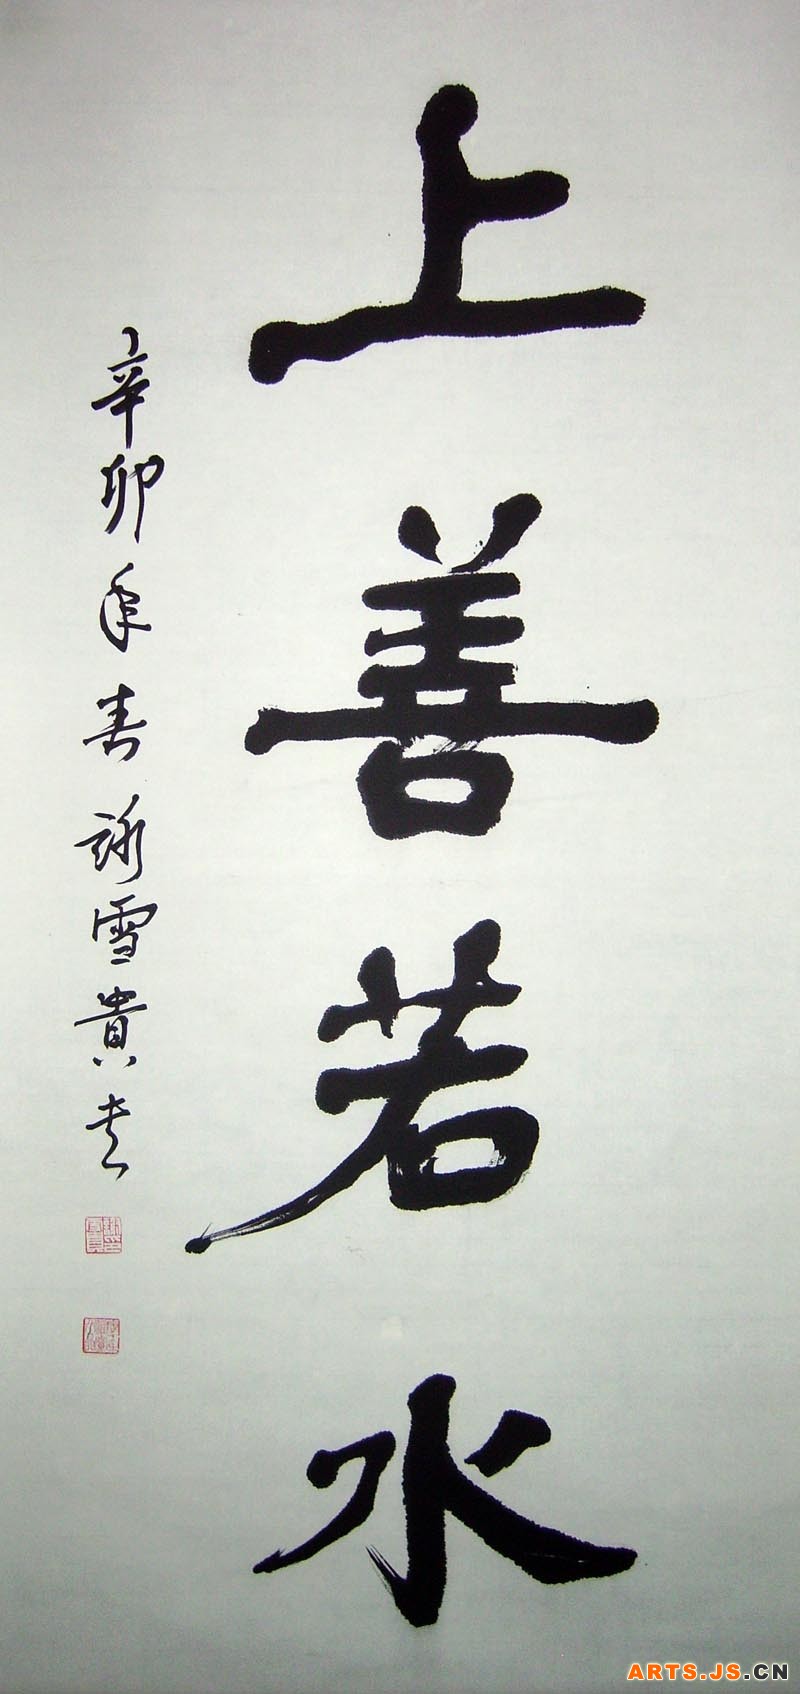 上善若水
辛卯年春詠雪貴书
ARTS.JS.CN